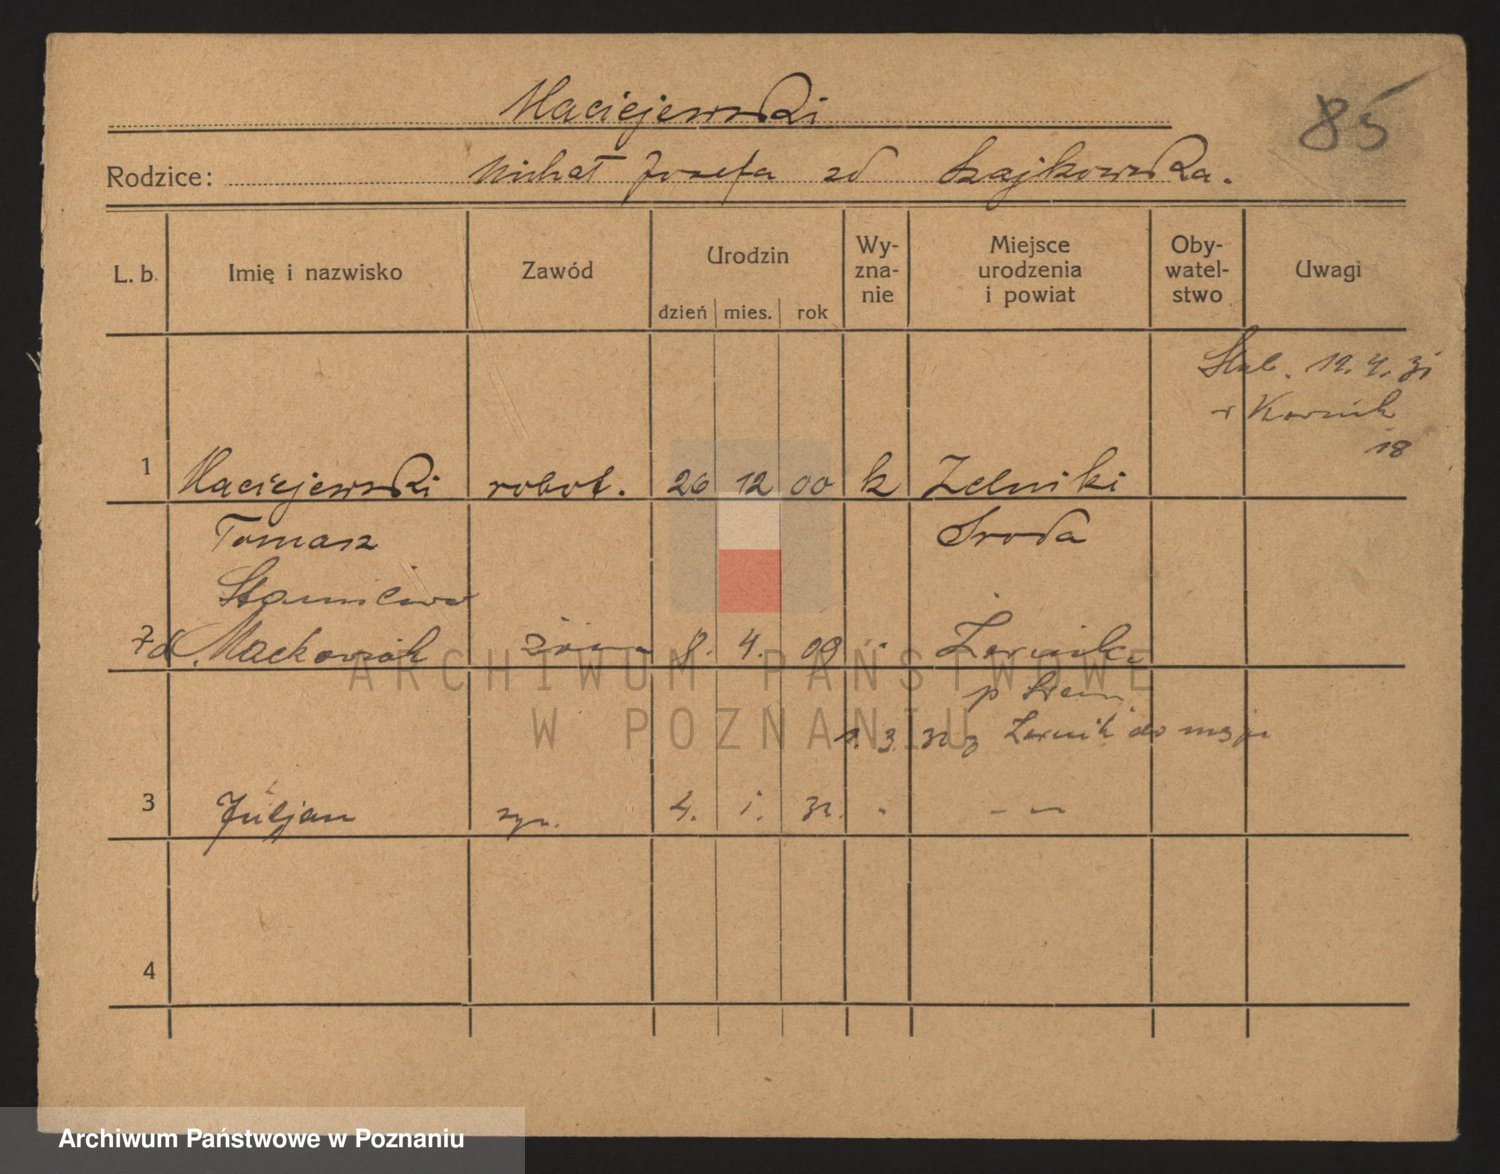 Maciejewski
85
Rodzice: Michał Józefa zd Szajkowska.
L. b. Imię i nazwisko Zawód Urodzin dzień mies. rok Wy-zna-nie Miejsce urodzenia i powiat Oby-watel-stwo Uwagi
Ślub. 12.4.31
w Kórnik
18
1 Maciejewski robot. 26 12 00 k Zelniki
Tomasz Sroda
Stanisława
2 zd Maćkowiak żona 8. 4. 09 "
p Śrem
1. 3. 32 z do
3 Juljan syn. 4. 1. 32. " - —
4
ARCHIWUM PAŃSTWOWE
W POZNANIU
Archiwum Państwowe w Poznaniu